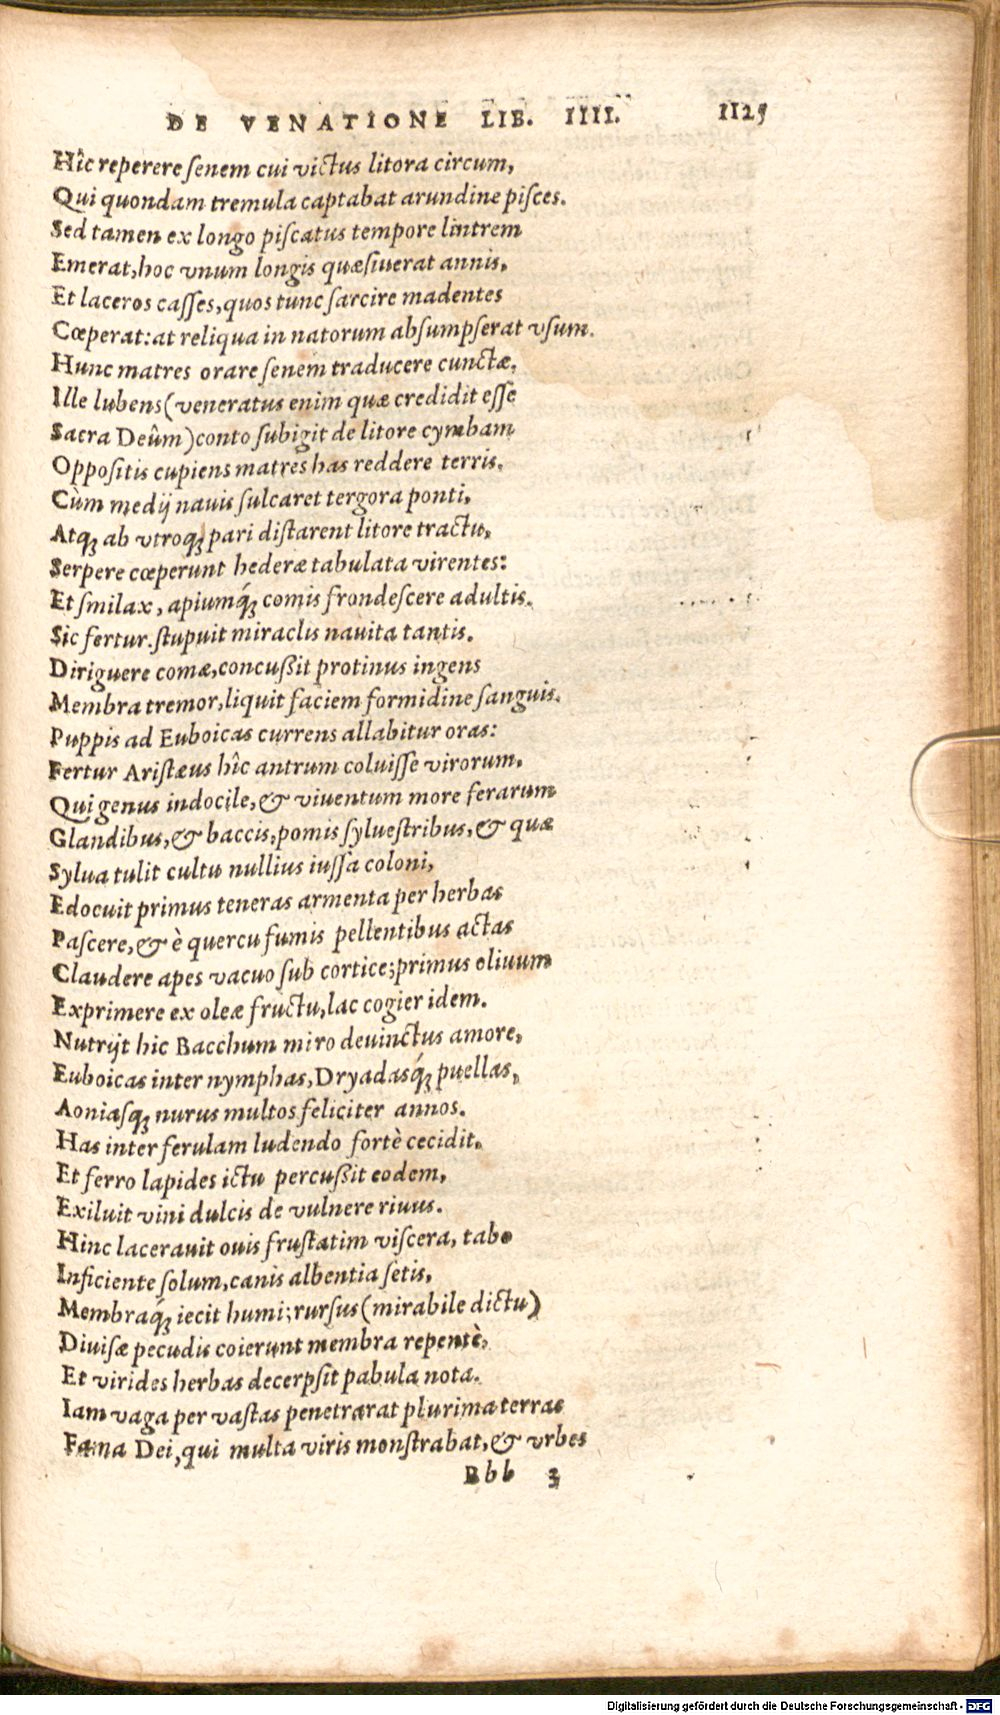 DE VENATIONE LIB. IIII. 1125
Hîc reperere ſenem cui victus litora circum,
Qui quondam tremula captabat arundine piſces.
Sed tamen ex longo piſcatus tempore lintrem
Emerat, hoc vnum longis quæſiuerat annis,
Et laceros caſſes, quos tunc ſarcire madentes
Cœperat: at reliqua in natorum abſumpſerat vſum.
Hunc matres orare ſenem traducere cunctæ.
Ille lubens (veneratus enim quæ credidit eſſe
Sacra Deûm) conto ſubigit de litore cymbam
Oppoſitis cupiens matres has reddere terris.
Cùm medij nauis ſulcaret tergora ponti,
Atqꝫ ab vtroqꝫ pari diſtarent litore tractu,
Serpere cœperunt hederæ tabulata virentes:
Et ſmilax, apiumq́ꝫ comis frondeſcere adultis.
Sic fertur. ſtupuit miraclis nauita tantis.
Diriguere comæ, concußit protinus ingens
Membra tremor, liquit faciem formidine ſanguis.
Puppis ad Euboicas currens allabitur oras:
Fertur Ariſtæus hîc antrum coluiſſe virorum,
Qui genus indocile, & viuentum more ferarum
Glandibus, & baccis, pomis ſylueſtribus, & quæ
Sylua tulit cultu nullius iuſſa coloni,
Edocuit primus teneras armenta per herbas
Paſcere, & è quercu fumis pellentibus actas
Claudere apes vacuo ſub cortice; primus oliuum
Exprimere ex oleæ fructu, lac cogier idem.
Nutrijt hic Bacchum miro deuinctus amore,
Euboicas inter nymphas, Dryadasq́ꝫ puellas,
Aoniaſqꝫ nurus multos feliciter annos.
Has inter ferulam ludendo fortè cecidit,
Et ferro lapides ictu percußit eodem,
Exiluit vini dulcis de vulnere riuus.
Hinc lacerauit ouis fruſtatim viſcera, tabo
Inficiente ſolum, canis albentia ſetis,
Membraq́ꝫ iecit humi; rurſus (mirabile dictu)
Diuiſæ pecudis coierunt membra repentè,
Et virides herbas decerpſit pabula nota.
Iam vaga per vaſtas penetrarat plurima terras
Fama Dei, qui multa viris monſtrabat, & vrbes
Bbb 3
Digitalisierung gefördert durch die Deutsche Forschungsgemeinschaft - DFG